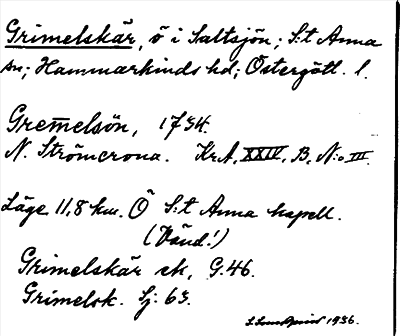 Grimelskär, ö i Saltsjön; S:t Anna
sn; Hammarkinds hd; Östergötl. l.
Gremelsön, 1734.
N. Strömcrona. Kr.A, XXIV, B, N:o III.
Läge 11,8 km. Ö S:t Anna kapell.
(Vänd!)
Grimelskär ek, G.46.
Grimelsk. Sj: 63.
1936.